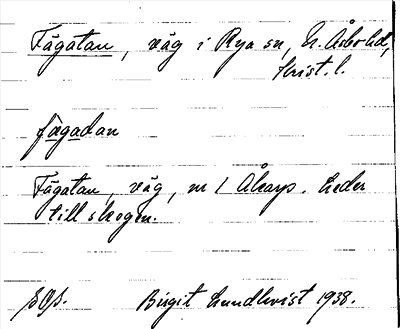 Fägatan, väg i Rya sn, N. Åsbo hd,
Krist. l.
fägadan
Fägatan, väg, nr 1 Åkarp. Leder
till skogen.
Birgit Lundkvist 1938.